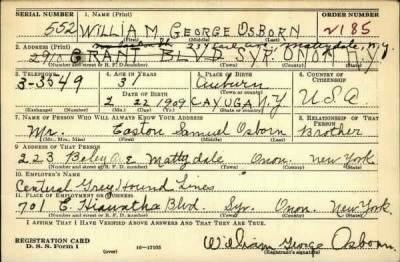 SERIAL NUMBER 1. NAME (Print) ORDER NUMBER
552 WILLIAM GEORGE OSBORN 2185
(First) (Middle) (Last)
2. ADDRESS (Print)
Mattydale, N.Y.
GRANT BLVD SYR ONON NY
(Number and street or R. F. D. number) (Town) (County) (State)
3. TELEPHONE 4. AGE IN YEARS 5. PLACE OF BIRTH 6. COUNTRY OF CITIZENSHIP
3-3549 31 Auburn
DATE OF BIRTH (Town or county)
2 22 1909 CAYUGA N.Y. U.S.A
(Exchange) (Number) (Mo.) (Day) (Yr.) (State or country)
7. NAME OF PERSON WHO WILL ALWAYS KNOW YOUR ADDRESS 8. RELATIONSHIP OF THAT PERSON
Mr. Easton Samuel Osborn Brother
(Mr., Mrs., Miss) (First) (Middle) (Last)
9. ADDRESS OF THAT PERSON
223 Mattydale Onon. New York
(Number and street or R. F. D. number) (Town) (County) (State)
10. EMPLOYER'S NAME
Central GreyHound Lines
11. PLACE OF EMPLOYMENT OR BUSINESS
701 E. Hiawatha Blvd Syr. Onon. New York.
(Number and street or R. F. D. number) (Town) (County) (State)
I AFFIRM THAT I HAVE VERIFIED ABOVE ANSWERS AND THAT THEY ARE TRUE.
REGISTRATION CARD
D. S. S. Form 1 (over) 16-17105
William George Osborn
(Registrant's signature)